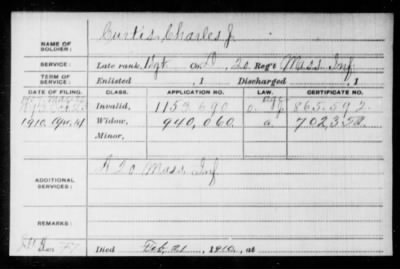 NAME OF SOLDIER: Curtis, Charles J.
SERVICE: Late rank, Co. D, 20 Reg't Mass. Inf.
TERM OF SERVICE: Enlisted , 1 Discharged , 1
DATE OF FILING. CLASS. APPLICATION NO. LAW. CERTIFICATE NO.
Invalid, 1153690 865.592
1910, Apr. 4 Widow, 940,060 a
Minor,
ADDITIONAL SERVICES: 20 Mass Inf
REMARKS:
Died Feb. 21, 1910, at